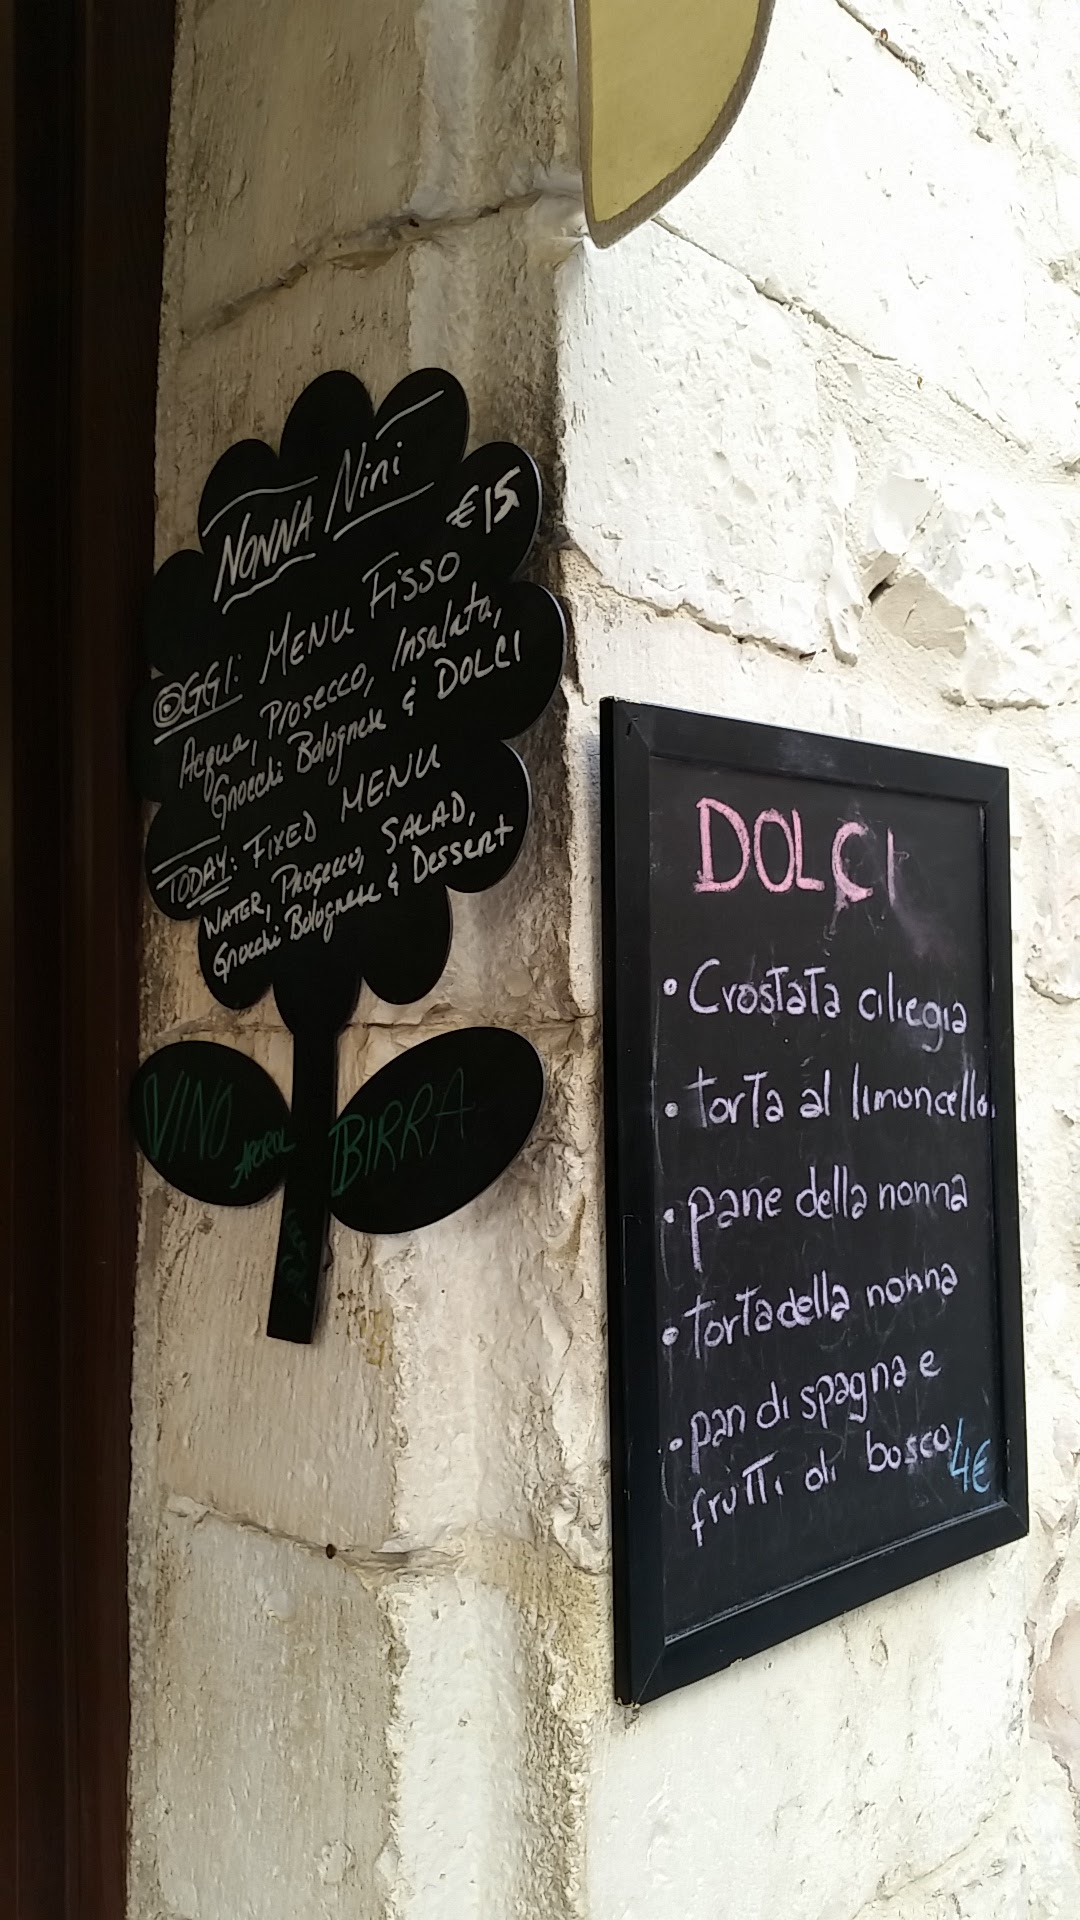 NONNA Nini
€15
OGGI: MENU FISSO
Acqua, Prosecco, Insalata,
Gnocchi Bolognese & DOLCI
TODAY: FIXED MENU
WATER, Prosecco, SALAD,
Gnocchi Bolognese & Dessert
VINO
APEROL
BIRRA
DOLCI
• Crostata ciliegia
• torta al limoncello.
• pane della nonna
• torta della nonna
• pan di spagna e
frutti di bosco 4€